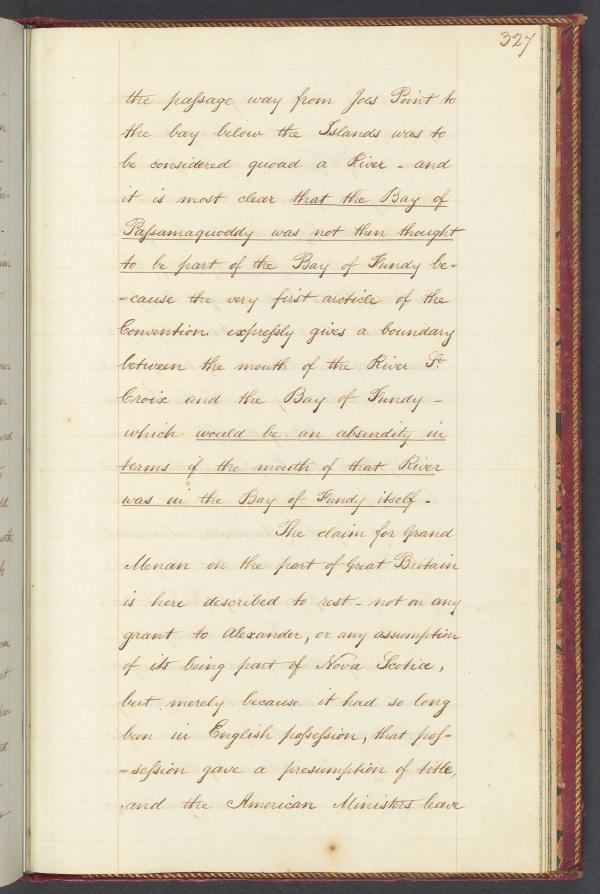 327
the passage way from Joes Point to
the bay below the Islands was to
be considered quoad a River - and
it is most clear that the Bay of
Passamaquoddy was not then thought
to be part of the Bay of Fundy be-
-cause the very first arcticle of the
Convention expressly gives a boundary
between the mouth of the River St.
Croix and the Bay of Fundy -
which would be an absurdity in
terms if the mouth of that River
was in the Bay of Fundy itself -
The claim for Grand
Menan on the part of Great Britain
is here described to rest - not on any
grant to Alexander, or any assumption
of its being part of Nova Scotia,
but merely because it had so long
been in English possession, that pos-
-session gave a presumption of title,
and the American Ministers leave